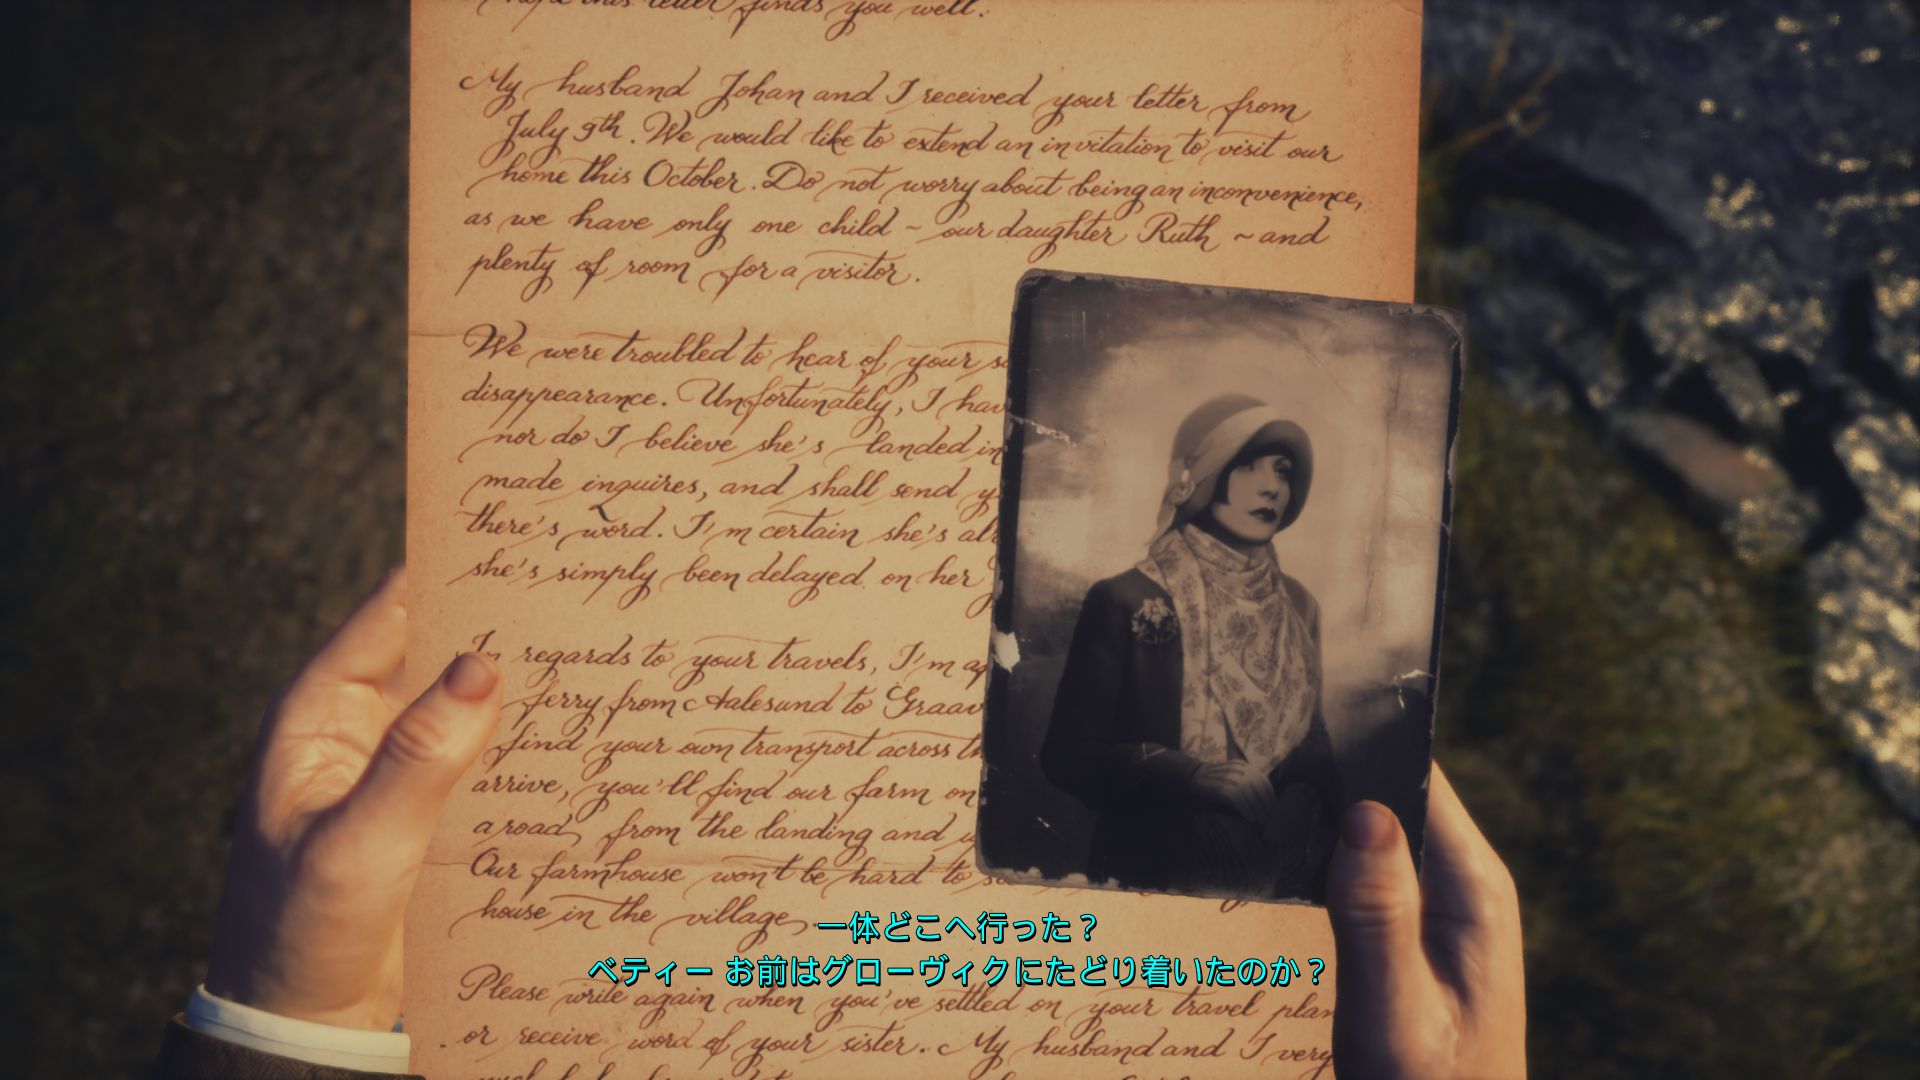 hope this letter finds you well.
My husband Johan and I received your letter from
July 9th. We would like to extend an invitation to visit our
home this October. Do not worry about being an inconvenience,
as we have only one child ~ our daughter Ruth ~ and
plenty of room for a visitor.
We were troubled to hear of your
disappearance. Unfortunately, I hav
nor do I believe she's landed in
made inquires, and shall send y
there's word. I'm certain she's al
she's simply been delayed on her
In regards to your travels, I'm
ferry from Aalesund to Graav
find your own transport across
arrive, you'll find our farm on
a road from the landing and
Our farmhouse won't be hard to
house in the village.
一体どこへ行った？
ベティー お前はグローヴィクにたどり着いたのか？
Please write again when you've settled on your travel plan
or receive word of your sister. My husband and I very